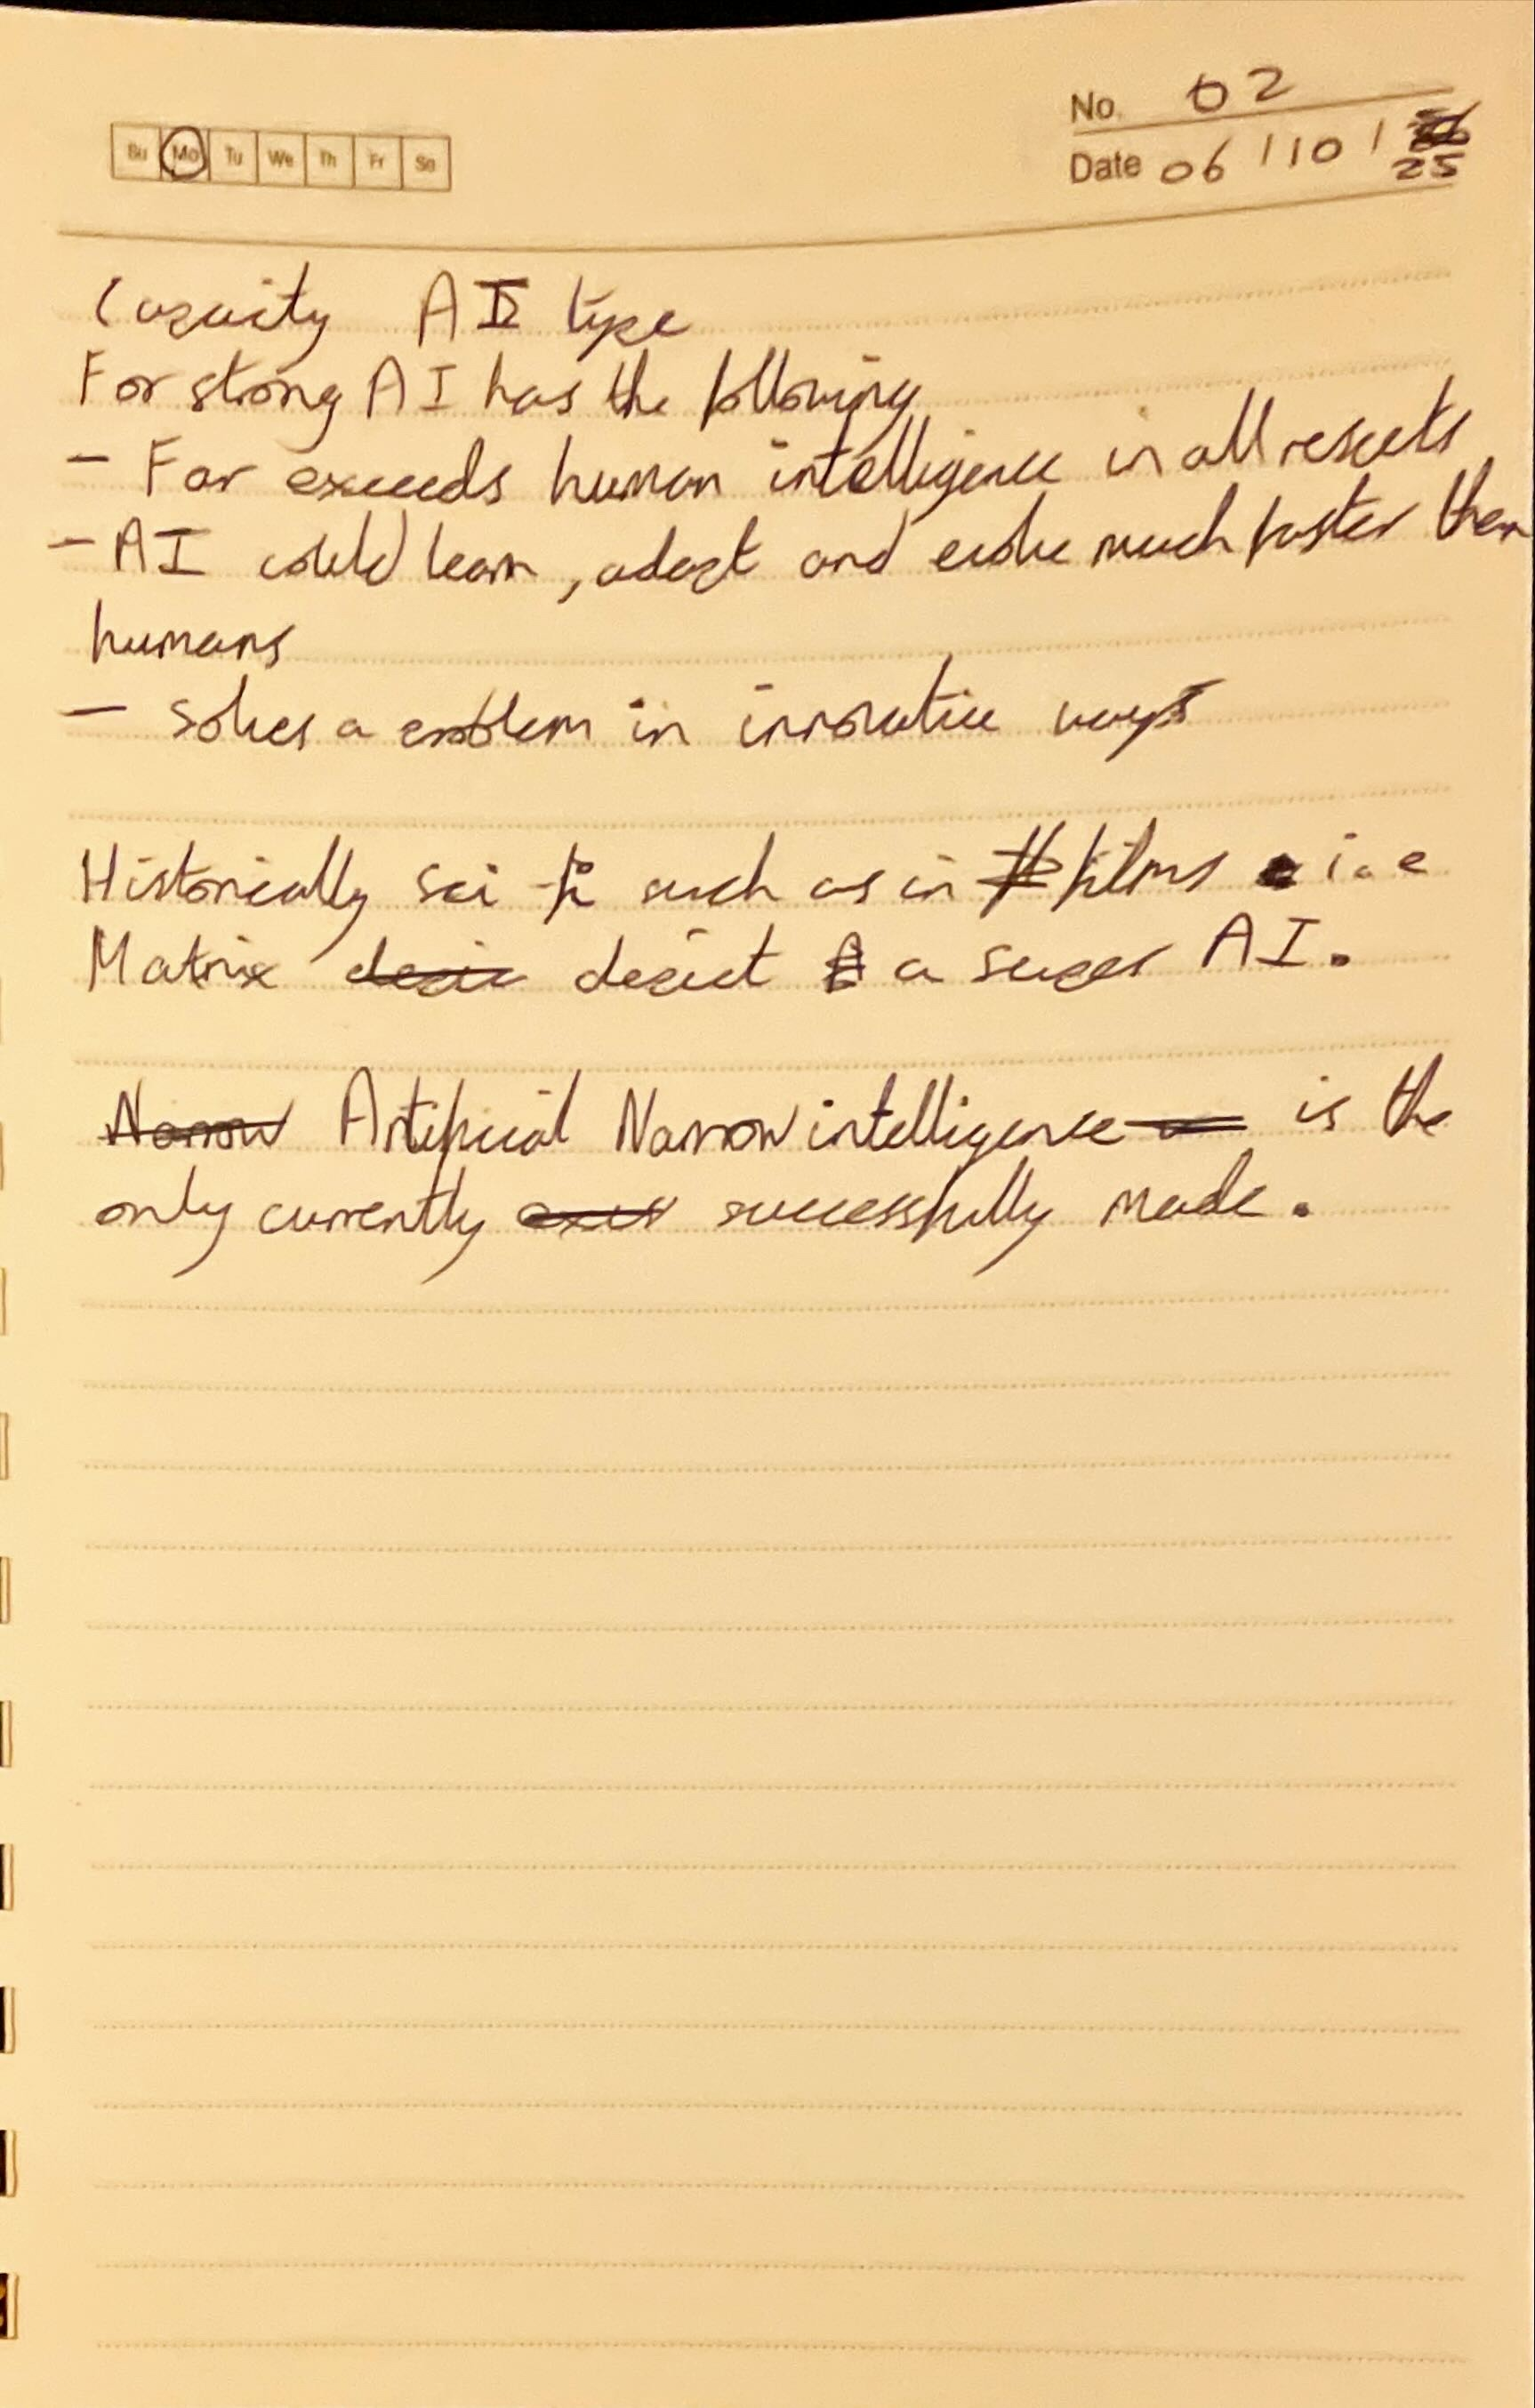 No. 02
Su Mo Tu We Th Fr Sa
Date 06/10/25
Capacity AI type
For strong AI has the following
- Far exceeds human intelligence in all respects
- AI could learn, adapt and evolve much faster than
humans
- solves a problem in innovative ways
Historically sci-fi such as in films i.e
Matrix depict a super AI.
Artificial Narrow intelligence is the
only currently successfully made.